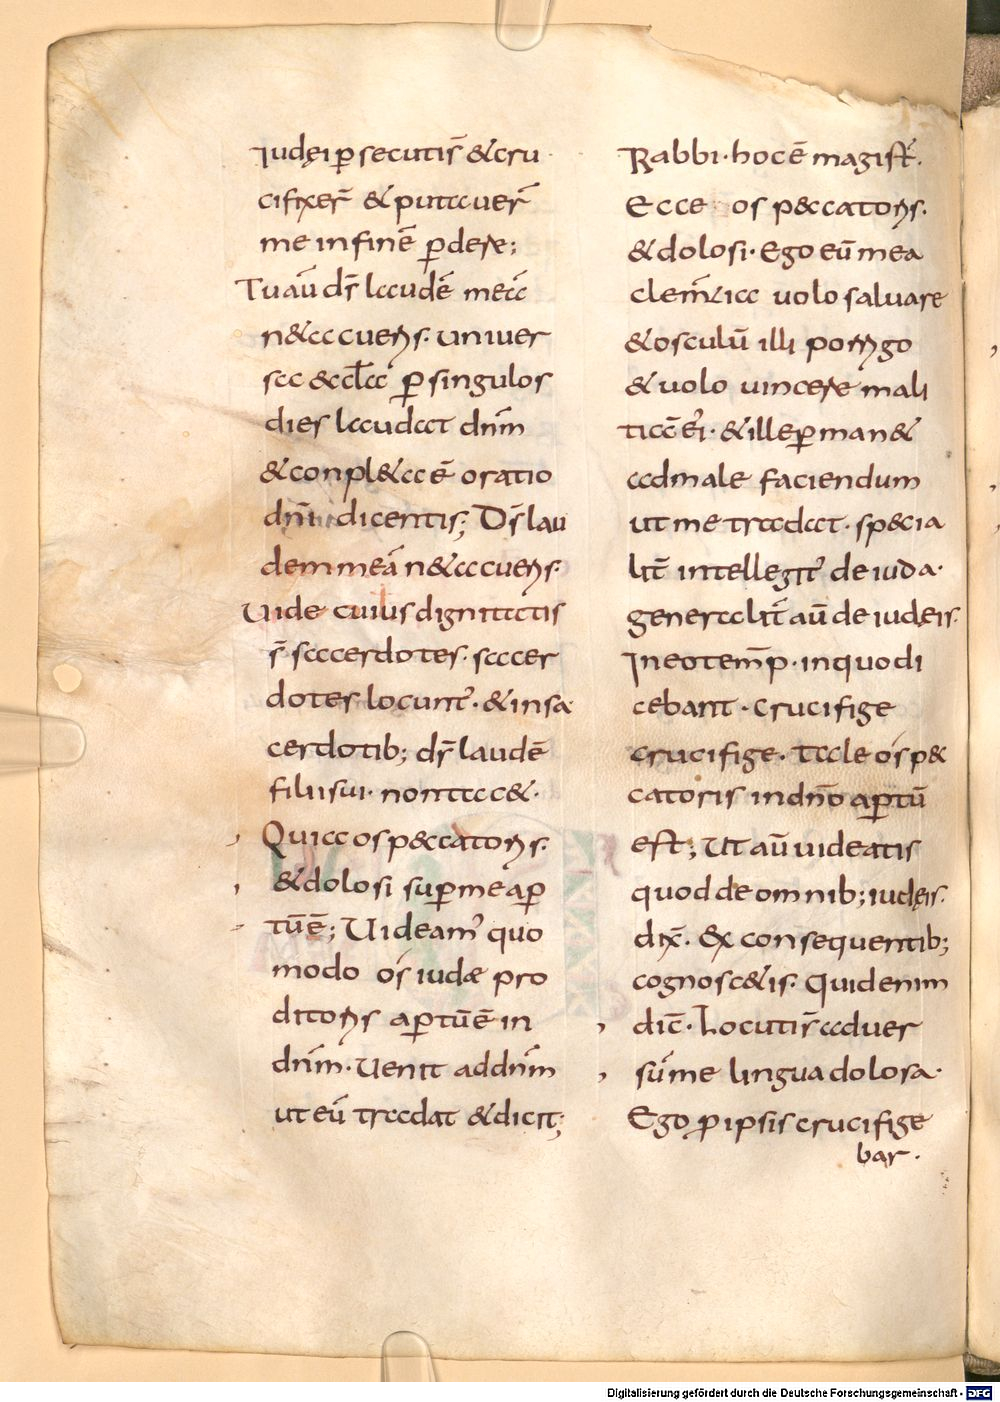 Iudęi p̄secutis̄ & cru
cifixer̄ & putauer̄
me in finē p̄dere;
Tu aū ds̄ laudē meā
n& acueris. uniuer
sa &ccl̄a p̄ singulos
dies laudat dn̄m
& conpl&a ē oratio
dn̄i dicentis; Ds̄ lau
dem meā n& acueris.
Uide cuius dignitatis
s̄ sacerdotes. sacer
dotes locunt̄. & in sa
cerdotib; ds̄ laudē
filii sui. non tac&.
Quia os peccatoris.
& dolosi sup̄ me ap̄
tū ē; Uideam̄ quo
modo ōs iudæ pro
ditoris ap̄tū ē in
dn̄m. Uenit ad dn̄m
ut eū tradat & dicit;
Rabbi. hoc ē magist̄.
Ecce os p&catoris.
& dolosi. Ego eū mea
clem̄tia uolo saluare
& osculū illi porrigo
& uolo uincere mali
tiā ei. & ille p̄man&
ad male faciendum
ut me tradat. specia
lit̄ intellegit̄ de iuda.
generalit̄ aū de iudęis.
In eo temp̄. in quo di
cebant. Crucifige
crucifige. Tale ōs pec
catoris in dn̄o ap̄tū
est; Ut aū uideatis
quod de omnib; iudęis.
dix̄. Ex consequentib;
cognosc&is. Quid enim
dic̄. Locutis̄ aduer
sū me lingua dolosa.
Ego p̄ ipsis crucifige
bar.
Digitalisierung gefördert durch die Deutsche Forschungsgemeinschaft - DFG